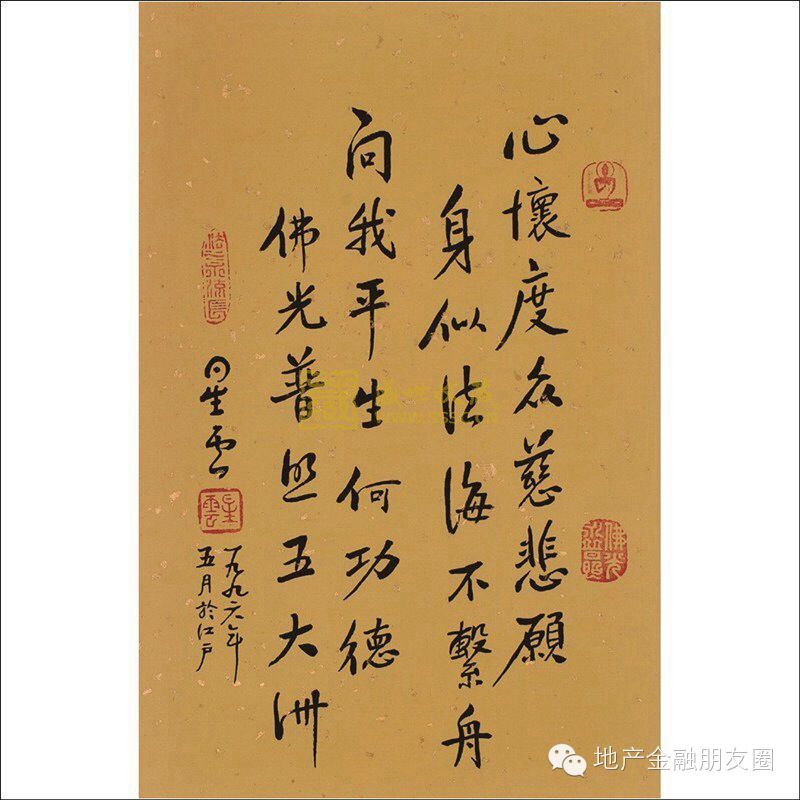 心懷度众慈悲願
身似法海不繫舟
问我平生何功德
佛光普照五大洲
星雲
星雲
一九九六年
五月於江戸
地产金融朋友圈